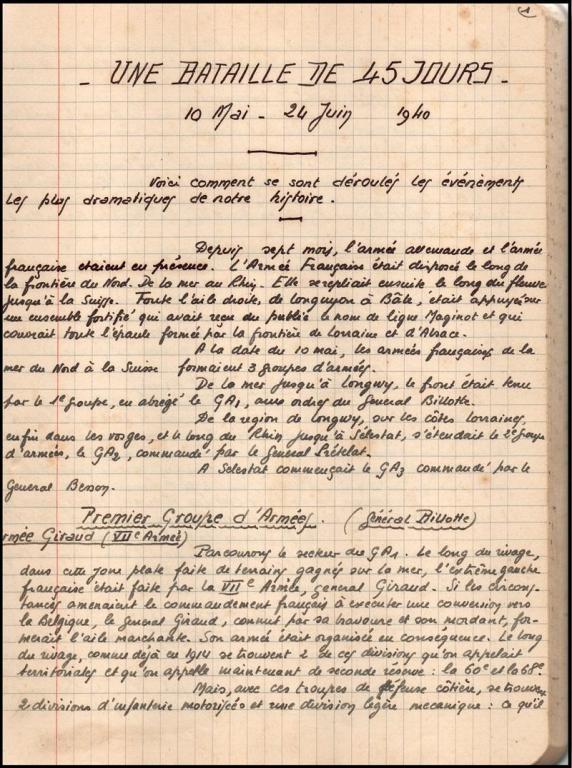 1
- UNE BATAILLE DE 45 JOURS -
10 Mai - 24 Juin 1940
Voici comment se sont déroulés les événements
les plus dramatiques de notre histoire.
Depuis sept mois, l'armée allemande et l'armée
française étaient en présence. L'Armée Française était disposé le long de
la frontière du Nord. De la mer au Rhin. Elle se repliait ensuite le long du fleuve
jusqu'à la Suisse. Toute l'aile droite, de Longuyon à Bâle, était appuyée sur
un ensemble fortifié qui avait reçu du public le nom de ligne Maginot et qui
couvrait toute l'épaule formée par la frontière de Lorraine et d'Alsace.
A la date du 10 mai, les armées françaises de la
mer du Nord à la Suisse formaient 3 groupes d'armées.
De la mer jusqu'à Longwy, le front était tenu
par le 1e groupe, en abrégé le GA1, aux ordres du General Billotte.
De la region de Longwy, sur les côtes lorraines,
enfin dans les vosges, et le long du Rhin jusqu'à Sélestat, s'étendait le 2e groupe
d'armées, le GA2, commandé par le General Prételat.
A Selestat commençait le GA3 commandé par le
General Besson.
Premier Groupe d'Armées. (Général Billotte)
rmée Giraud (VIIe Armée)
Parcourons le secteur du GA1. Le long du rivage,
dans cette zone plate faite de terrains gagnés sur la mer, l'extrême gauche
française était faite par la VIIe Armée, General Giraud. Si les circons-
tances amenaient le commandement français à exécuter une conversion vers
la Belgique, le General Giraud, connut par sa bravoure et son mordant, for-
merait l'aile marchante. Son armée était organisée en conséquence. Le long
du rivage, comme déjà en 1914 se trouvent 2 de ces divisions qu'on appelait
territoriales et qu'on appelle maintenant de seconde réserve : la 60e et la 68e.
Mais, avec ces troupes de défense côtière, se trouvent
2 divisions d'infanterie motorisées et une division légère mecanique : ce qu'il